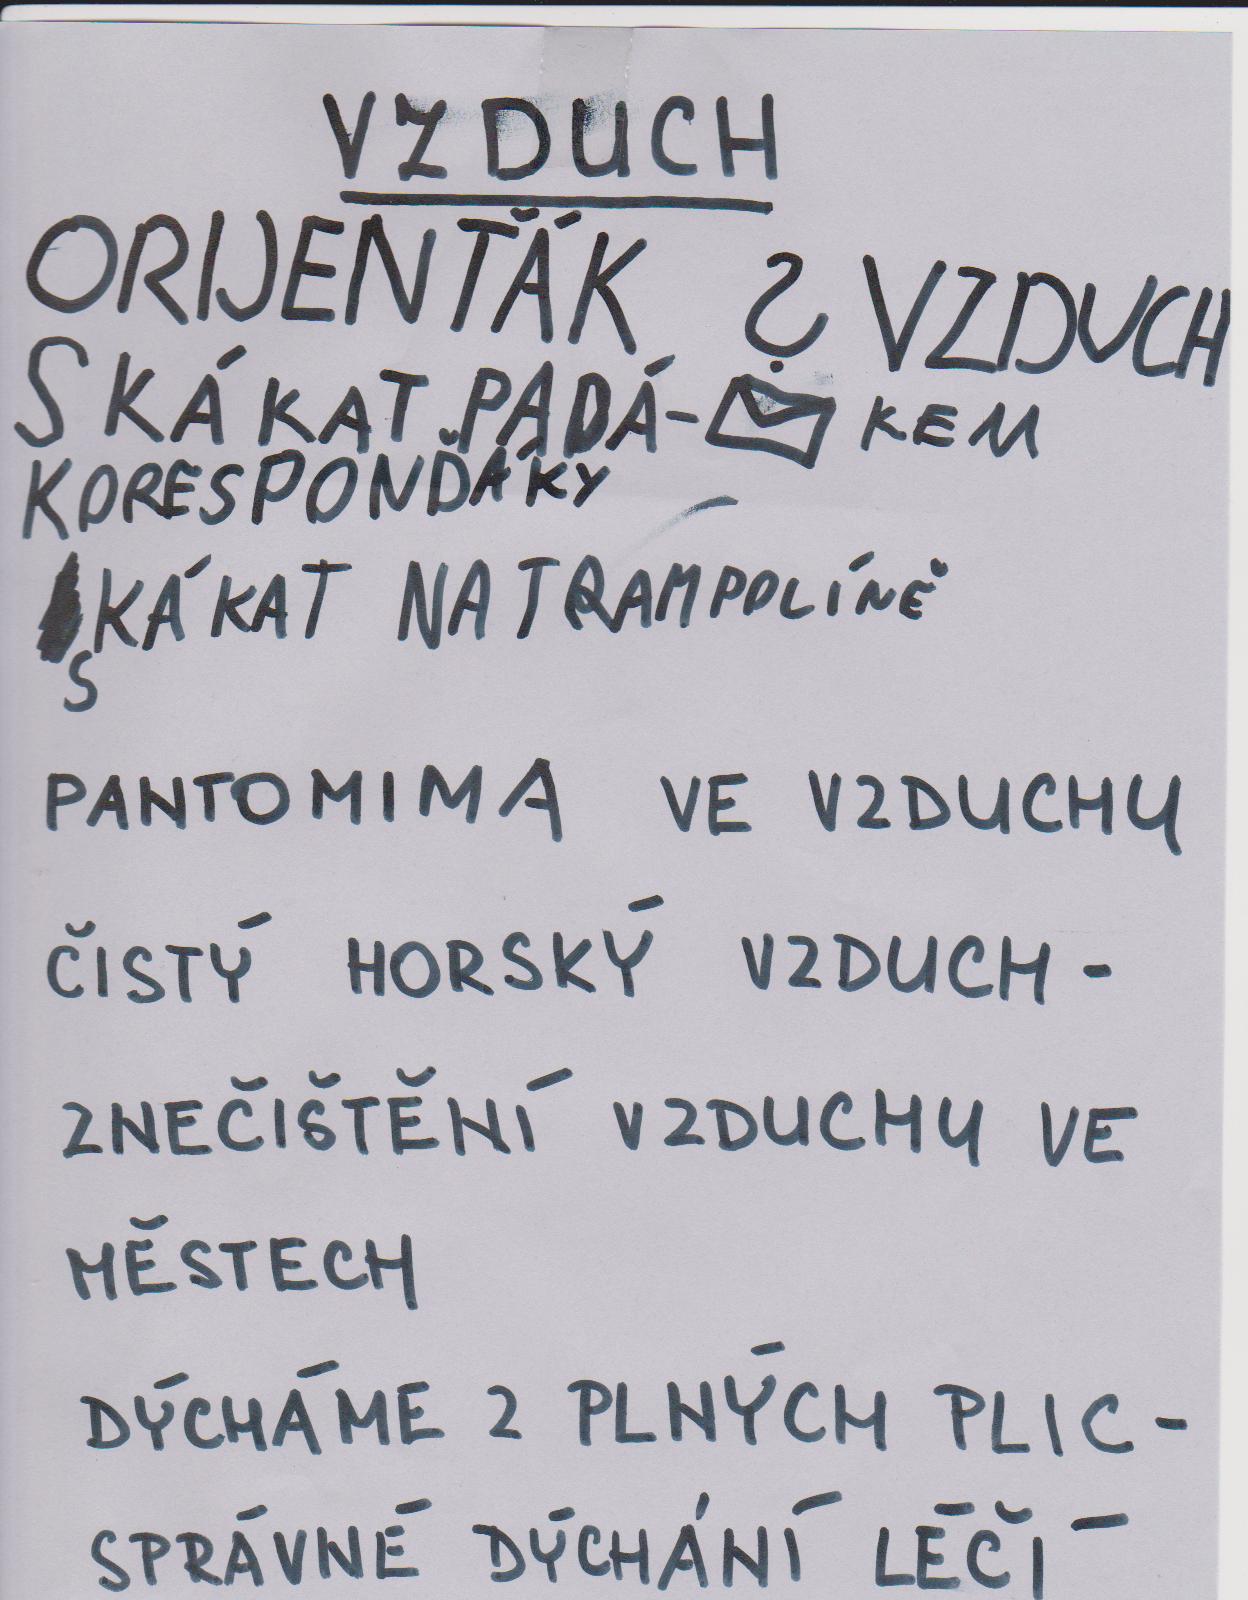 VZDUCH
ORIJENŤÁK ? VZDUCH
SKÁKAT PADÁ- KEM
KORESPONĎÁKY
SKÁKAT NA TRAMPOLÍNĚ
PANTOMIMA VE VZDUCHU
ČISTÝ HORSKÝ VZDUCH -
ZNEČIŠTĚNÍ VZDUCHU VE
MĚSTECH
DÝCHÁME Z PLNÝCH PLIC -
SPRÁVNÉ DÝCHÁNÍ LÉČÍ